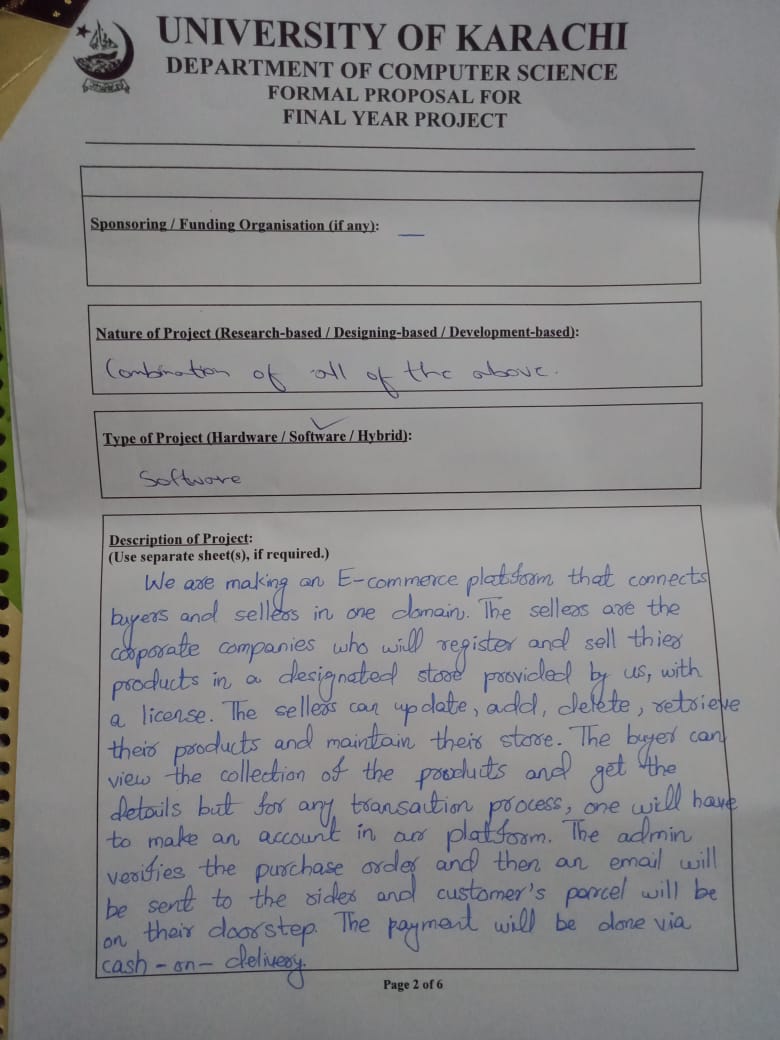 UNIVERSITY OF KARACHI
DEPARTMENT OF COMPUTER SCIENCE
FORMAL PROPOSAL FOR
FINAL YEAR PROJECT
Sponsoring / Funding Organisation (if any): —
Nature of Project (Research-based / Designing-based / Development-based):
Combination of all of the above.
Type of Project (Hardware / Software / Hybrid):
Software
Description of Project:
(Use separate sheet(s), if required.)
We are making an E-commerce platform that connects
buyers and sellers in one domain. The sellers are the
corporate companies who will register and sell thier
products in a designated store provided by us, with
a license. The sellers can update, add, delete, retrieve
their products and maintain their store. The buyer can
view the collection of the products and get the
details but for any transaction process, one will have
to make an account in our platform. The admin
verifies the purchase order and then an email will
be sent to the rider and customer's parcel will be
on their doorstep. The payment will be done via
cash-on-delivery.
Page 2 of 6